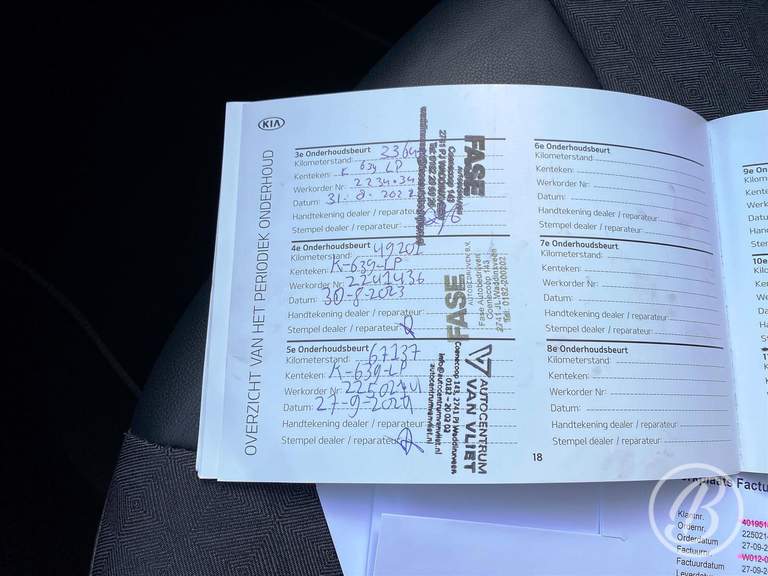 KIA
OVERZICHT VAN HET PERIODIEK ONDERHOUD
3e Onderhoudsbeurt
Kilometerstand:
Kenteken: K 639 LP
Werkorder Nr:
Datum: 31-8-2022
Handtekening dealer / reparateur:
Stempel dealer / reparateur:
FASE
Coenecoop 143
4e Onderhoudsbeurt
Kilometerstand: 49201
Kenteken: K-639-LP
Werkorder Nr: 2241436
Datum: 30-8-2023
Handtekening dealer / reparateur:
Stempel dealer / reparateur:
FASE
AUTOBEDRIJVEN B.V.
Fase Autobedrijven
Coenecoop 143
2741 PJ Waddinxveen
Tel: 0182-200202
5e Onderhoudsbeurt
Kilometerstand: 67137
Kenteken: K-639-LP
Werkorder Nr:
Datum: 27-9-2024
Handtekening dealer / reparateur:
Stempel dealer / reparateur:
AUTOCENTRUM
VAN VLIET
Coenecoop 143, 2741 PJ Waddinxveen
0182 - 20 02 02
info@autocentrumvanvliet.nl
autocentrumvanvliet.nl
6e Onderhoudsbeurt
Kilometerstand:
Kenteken:
Werkorder Nr:
Datum:
Handtekening dealer / reparateur:
Stempel dealer / reparateur:
7e Onderhoudsbeurt
Kilometerstand:
Kenteken:
Werkorder Nr:
Datum:
Handtekening dealer / reparateur:
Stempel dealer / reparateur:
8e Onderhoudsbeurt
Kilometerstand:
Kenteken:
Werkorder Nr:
Datum:
Handtekening dealer / reparateur:
Stempel dealer / reparateur:
18
B
Klantnr.
Ordernr.
Orderdatum
Factuurnr.
Factuurdatum